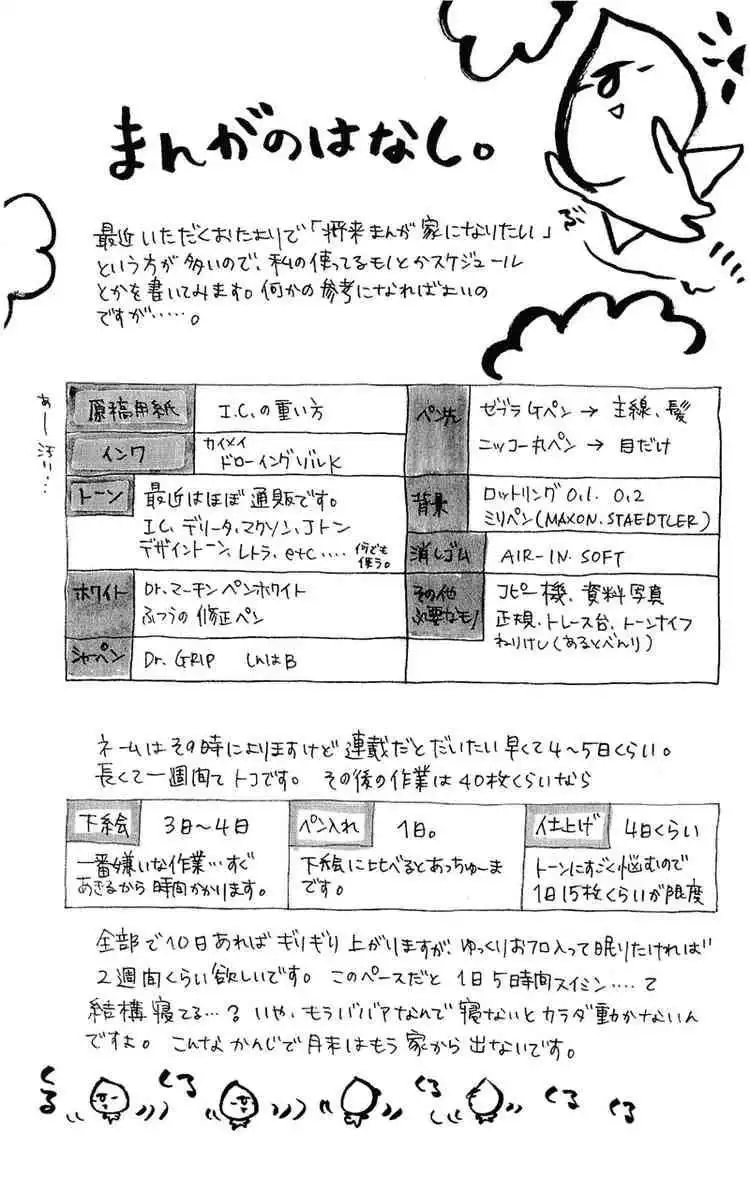 まんがのはなし。
最近いただくおたよりで「将来まんが家になりたい」
という方が多いので、私の使ってるモノとかスケジュール
とかを書いてみます。何かの参考になればよいの
ですが……。
あー汚い…
原稿用紙
I.C.の重い方
インク
カイメイ
ドローイングゾルK
トーン
最近はほぼ通販です。
I.C, デリータ, マクソン, Jトン
デザイントーン, レトラ, etc….
何でも
使う。
ホワイト
Dr.マーチン ペンホワイト
ふつうの修正ペン
シャーペン
Dr. GRIP しんはB
ペン先
ゼブラGペン → 主線、髪
ニッコー丸ペン → 目だけ
背景
ロットリング 0.1. 0.2
ミリペン(MAXON. STAEDTLER)
消しゴム
AIR-IN. SOFT
その他
必要なモノ
コピー機、資料写真
正規、トレース台、トーンナイフ
ねりけし(あるとべんり)
ネームはその時によりますけど連載だとだいたい早くて4〜5日くらい。
長くて一週間てトコです。その後の作業は40枚くらいなら
下絵
3日〜4日
一番嫌いな作業…すぐ
あきるから時間かかります。
ペン入れ
1日。
下絵に比べるとあっちゅーま
です。
仕上げ
4日くらい
トーンにすごく悩むので
1日15枚くらいが限度
全部で10日あればギリギリ上がりますが、ゆっくりおフロ入って眠りたければ
2週間くらい欲しいです。このペースだと1日5時間スイミン….て
結構寝てる…? いや、もうババァなんで寝ないとカラダ動かないん
ですよ。こんなかんじで月末はもう家から出ないです。
くる
くる
くる
くる
くる